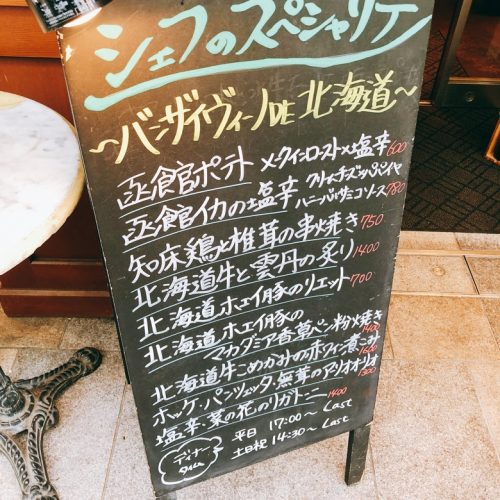 シェフのスペシャリテ
～バンザイヴィーノDE北海道～
函館ポテト メークインロースト×塩辛 600
函館イカの塩辛 クリームチーズ・パパイヤ
ハニーバルサミコソース 780
知床鶏と椎茸の串焼き 750
北海道牛と雲丹の炙り 1400
北海道ホエイ豚のリエット 700
北海道ホエイ豚の
マカダミア香草パン粉焼き 1400
北海道牛こめかみの赤ワイン煮こみ 1600
ホッケ・パンツェッタ・無茸のアーリオオーリオ 1300
塩辛・菜の花のリガトーニ 1400
ディナー
タイム
平日 17:00～ Last
土日祝 14:30～ Last